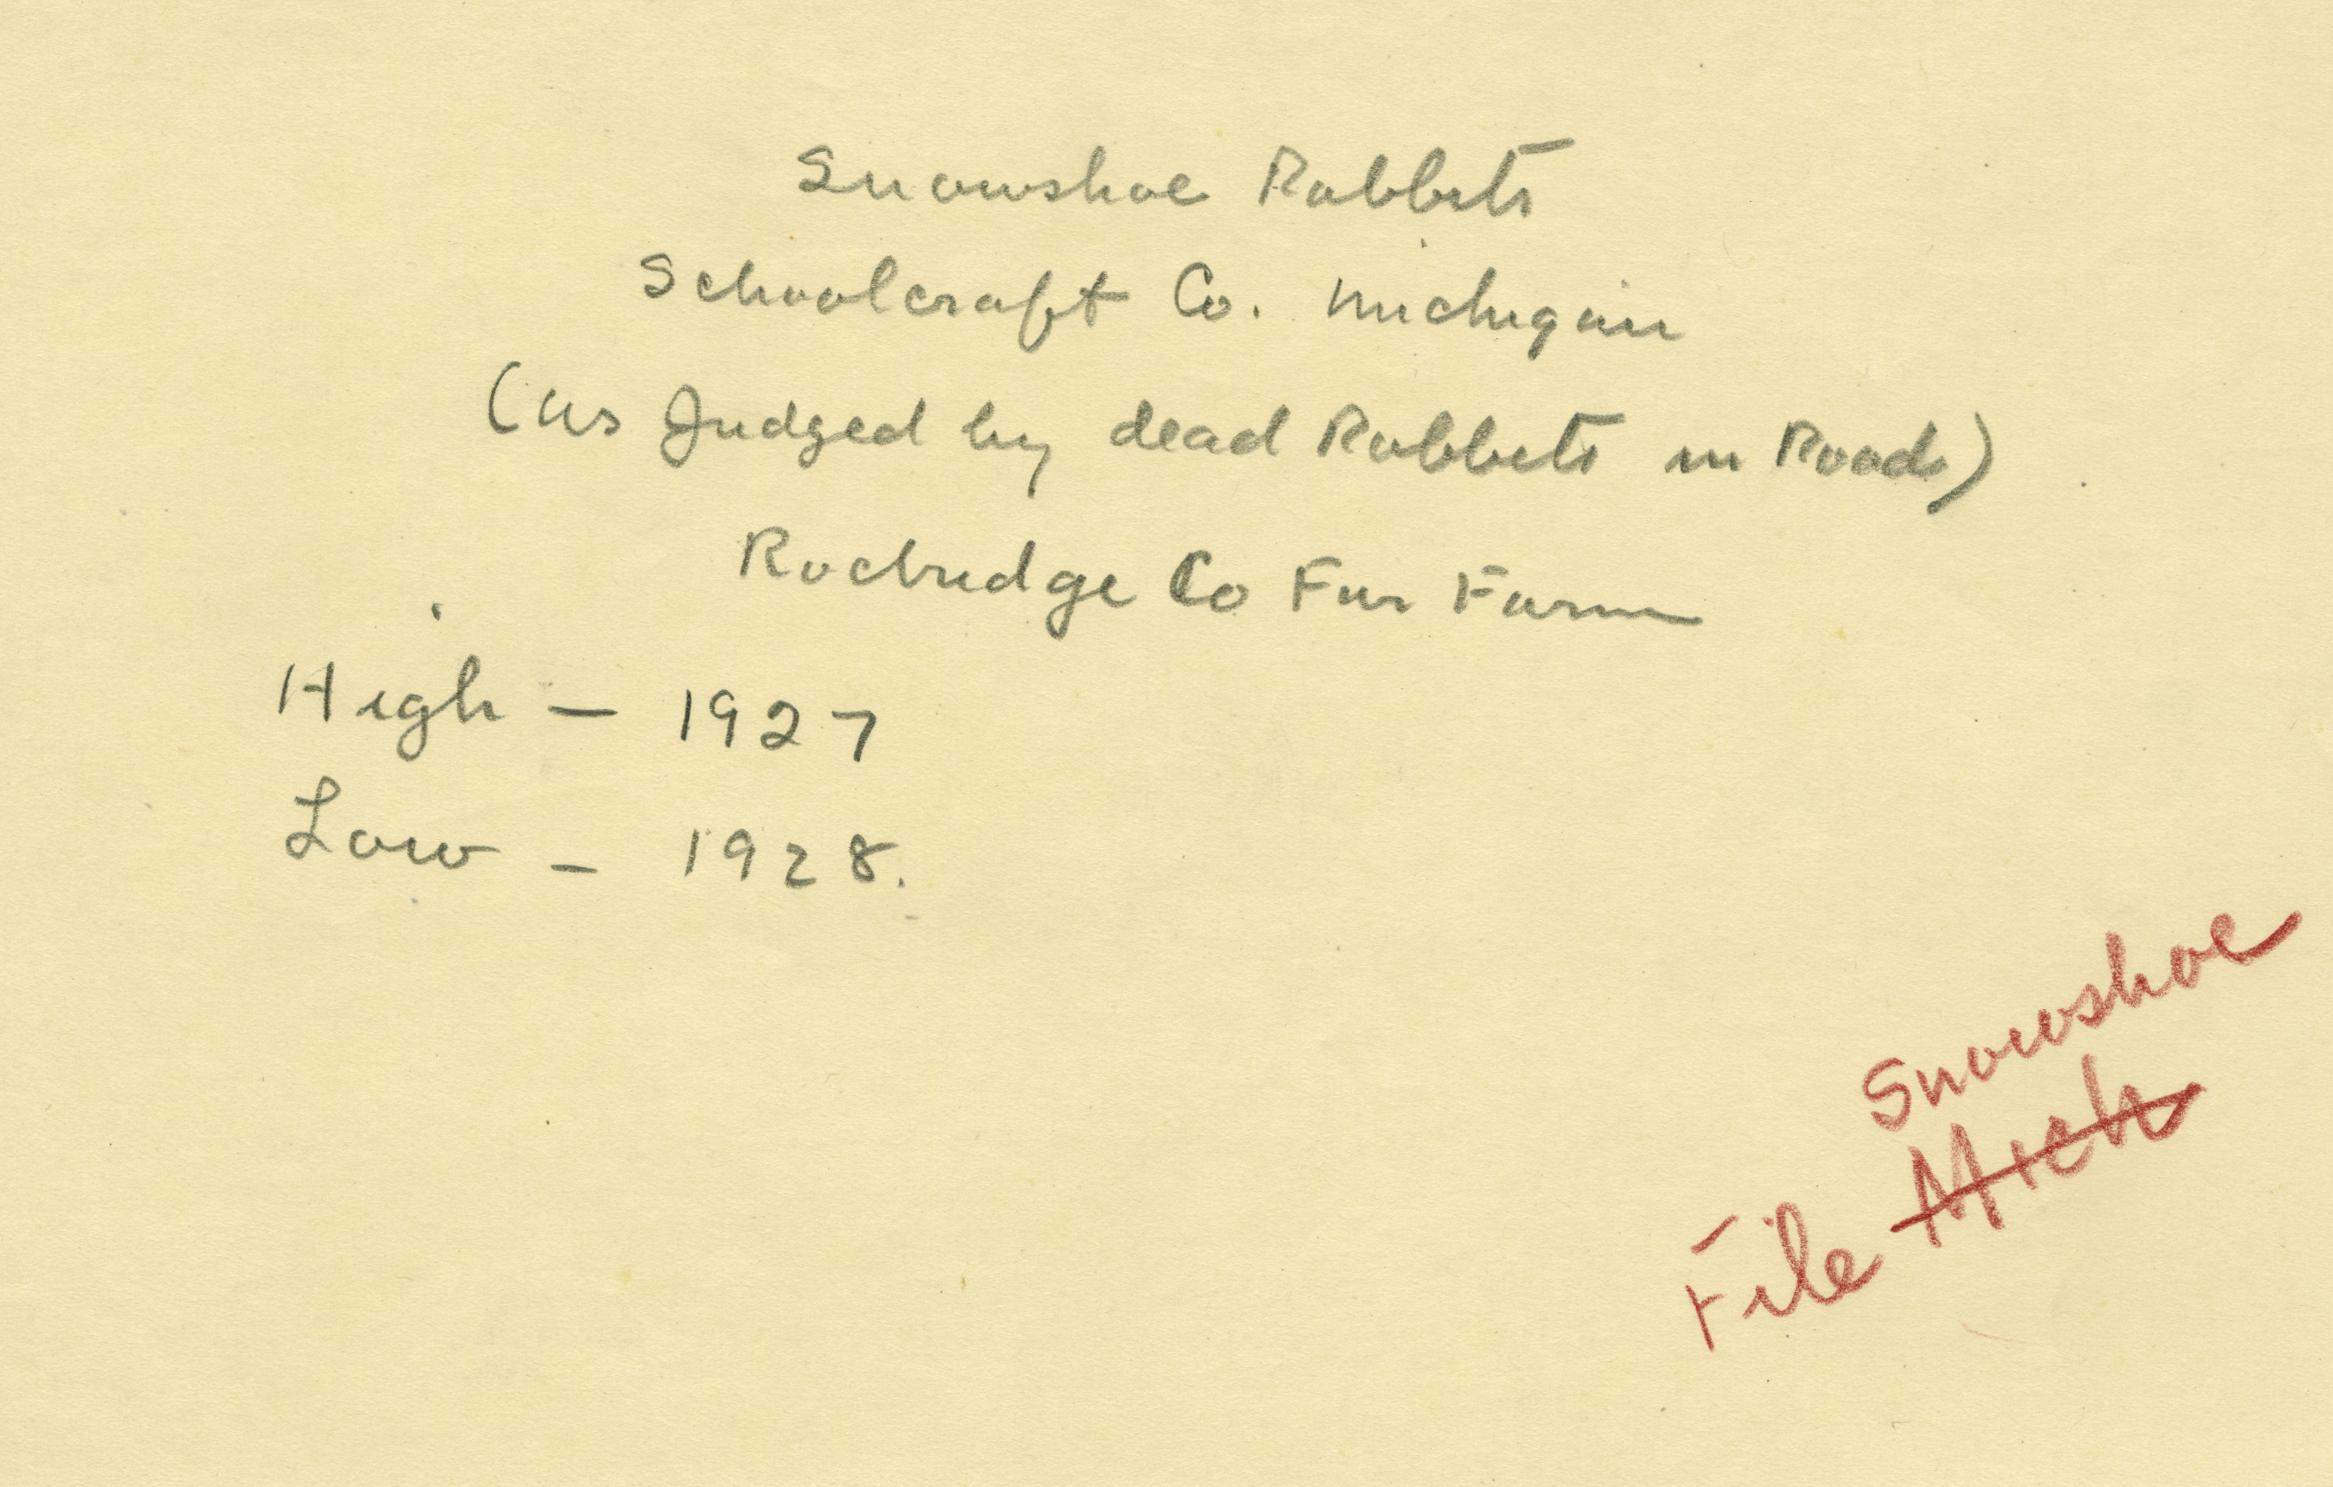 Snowshoe Rabbits
Schoolcraft Co. Michigan
(as Judged by dead Rabbits in Roads)
Rocbridge Co Fur Farm
High – 1927
Low – 1928.
Snowshoe
File Mich